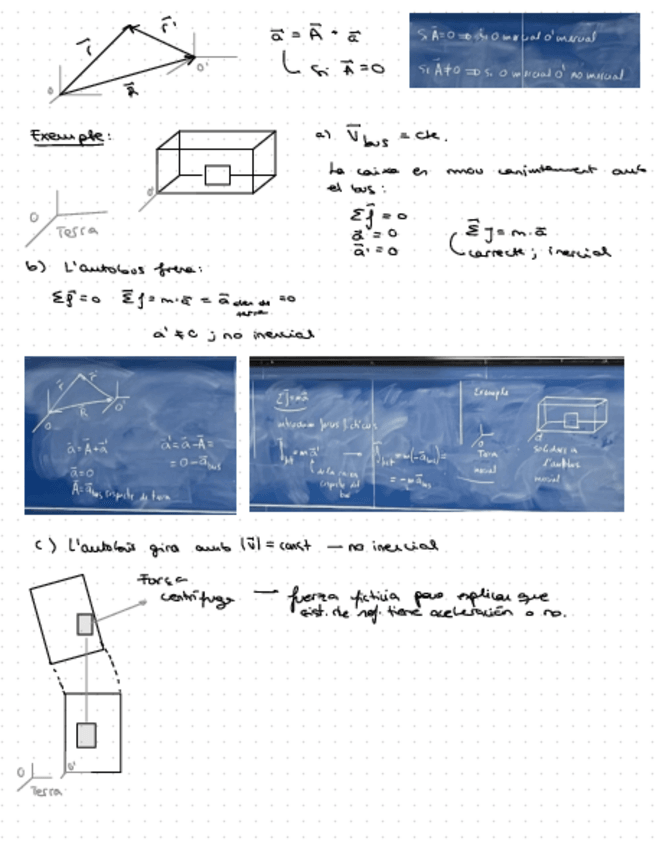 r⃗ r⃗' O' O R⃗
a⃗ = A⃗ + a⃗'
si A⃗ = 0
Si A⃗=0 ⇒ si O inercial O' inercial
Si A⃗≠0 ⇒ si O inercial O' no inercial
Exemple:
O'
O Terra
a) V⃗bus = cte.
La caixa es mou conjuntament amb
el bus:
Σf⃗ = 0
a⃗ = 0
a⃗' = 0
Σf⃗ = m·a⃗
correcte; inercial
b) L'autobus frena:
Σf⃗=0 Σf⃗=m·a⃗ = a⃗ des de terra =0
a' ≠ 0 ; no inercial
r⃗ r⃗'
O R⃗ O'
a⃗=A⃗+a⃗'
a⃗=0
A⃗=a⃗bus respecte de terra
a⃗'=a⃗-A⃗=
=0-a⃗bus
Σf⃗=ma⃗
introduir forces fictícies
f⃗fict=ma⃗'
de la caixa
respecte del
bus
f⃗fict=m(-a⃗bus)=
=-ma⃗bus
Exemple
O
Terra
inercial
O'
solidari a
l'autobus
c) L'autobús gira amb |v⃗| = const — no inercial
Força
centrífuga — fuerza ficticia para explicar que
sist. de ref. tiene aceleración o no.
O O'
Terra